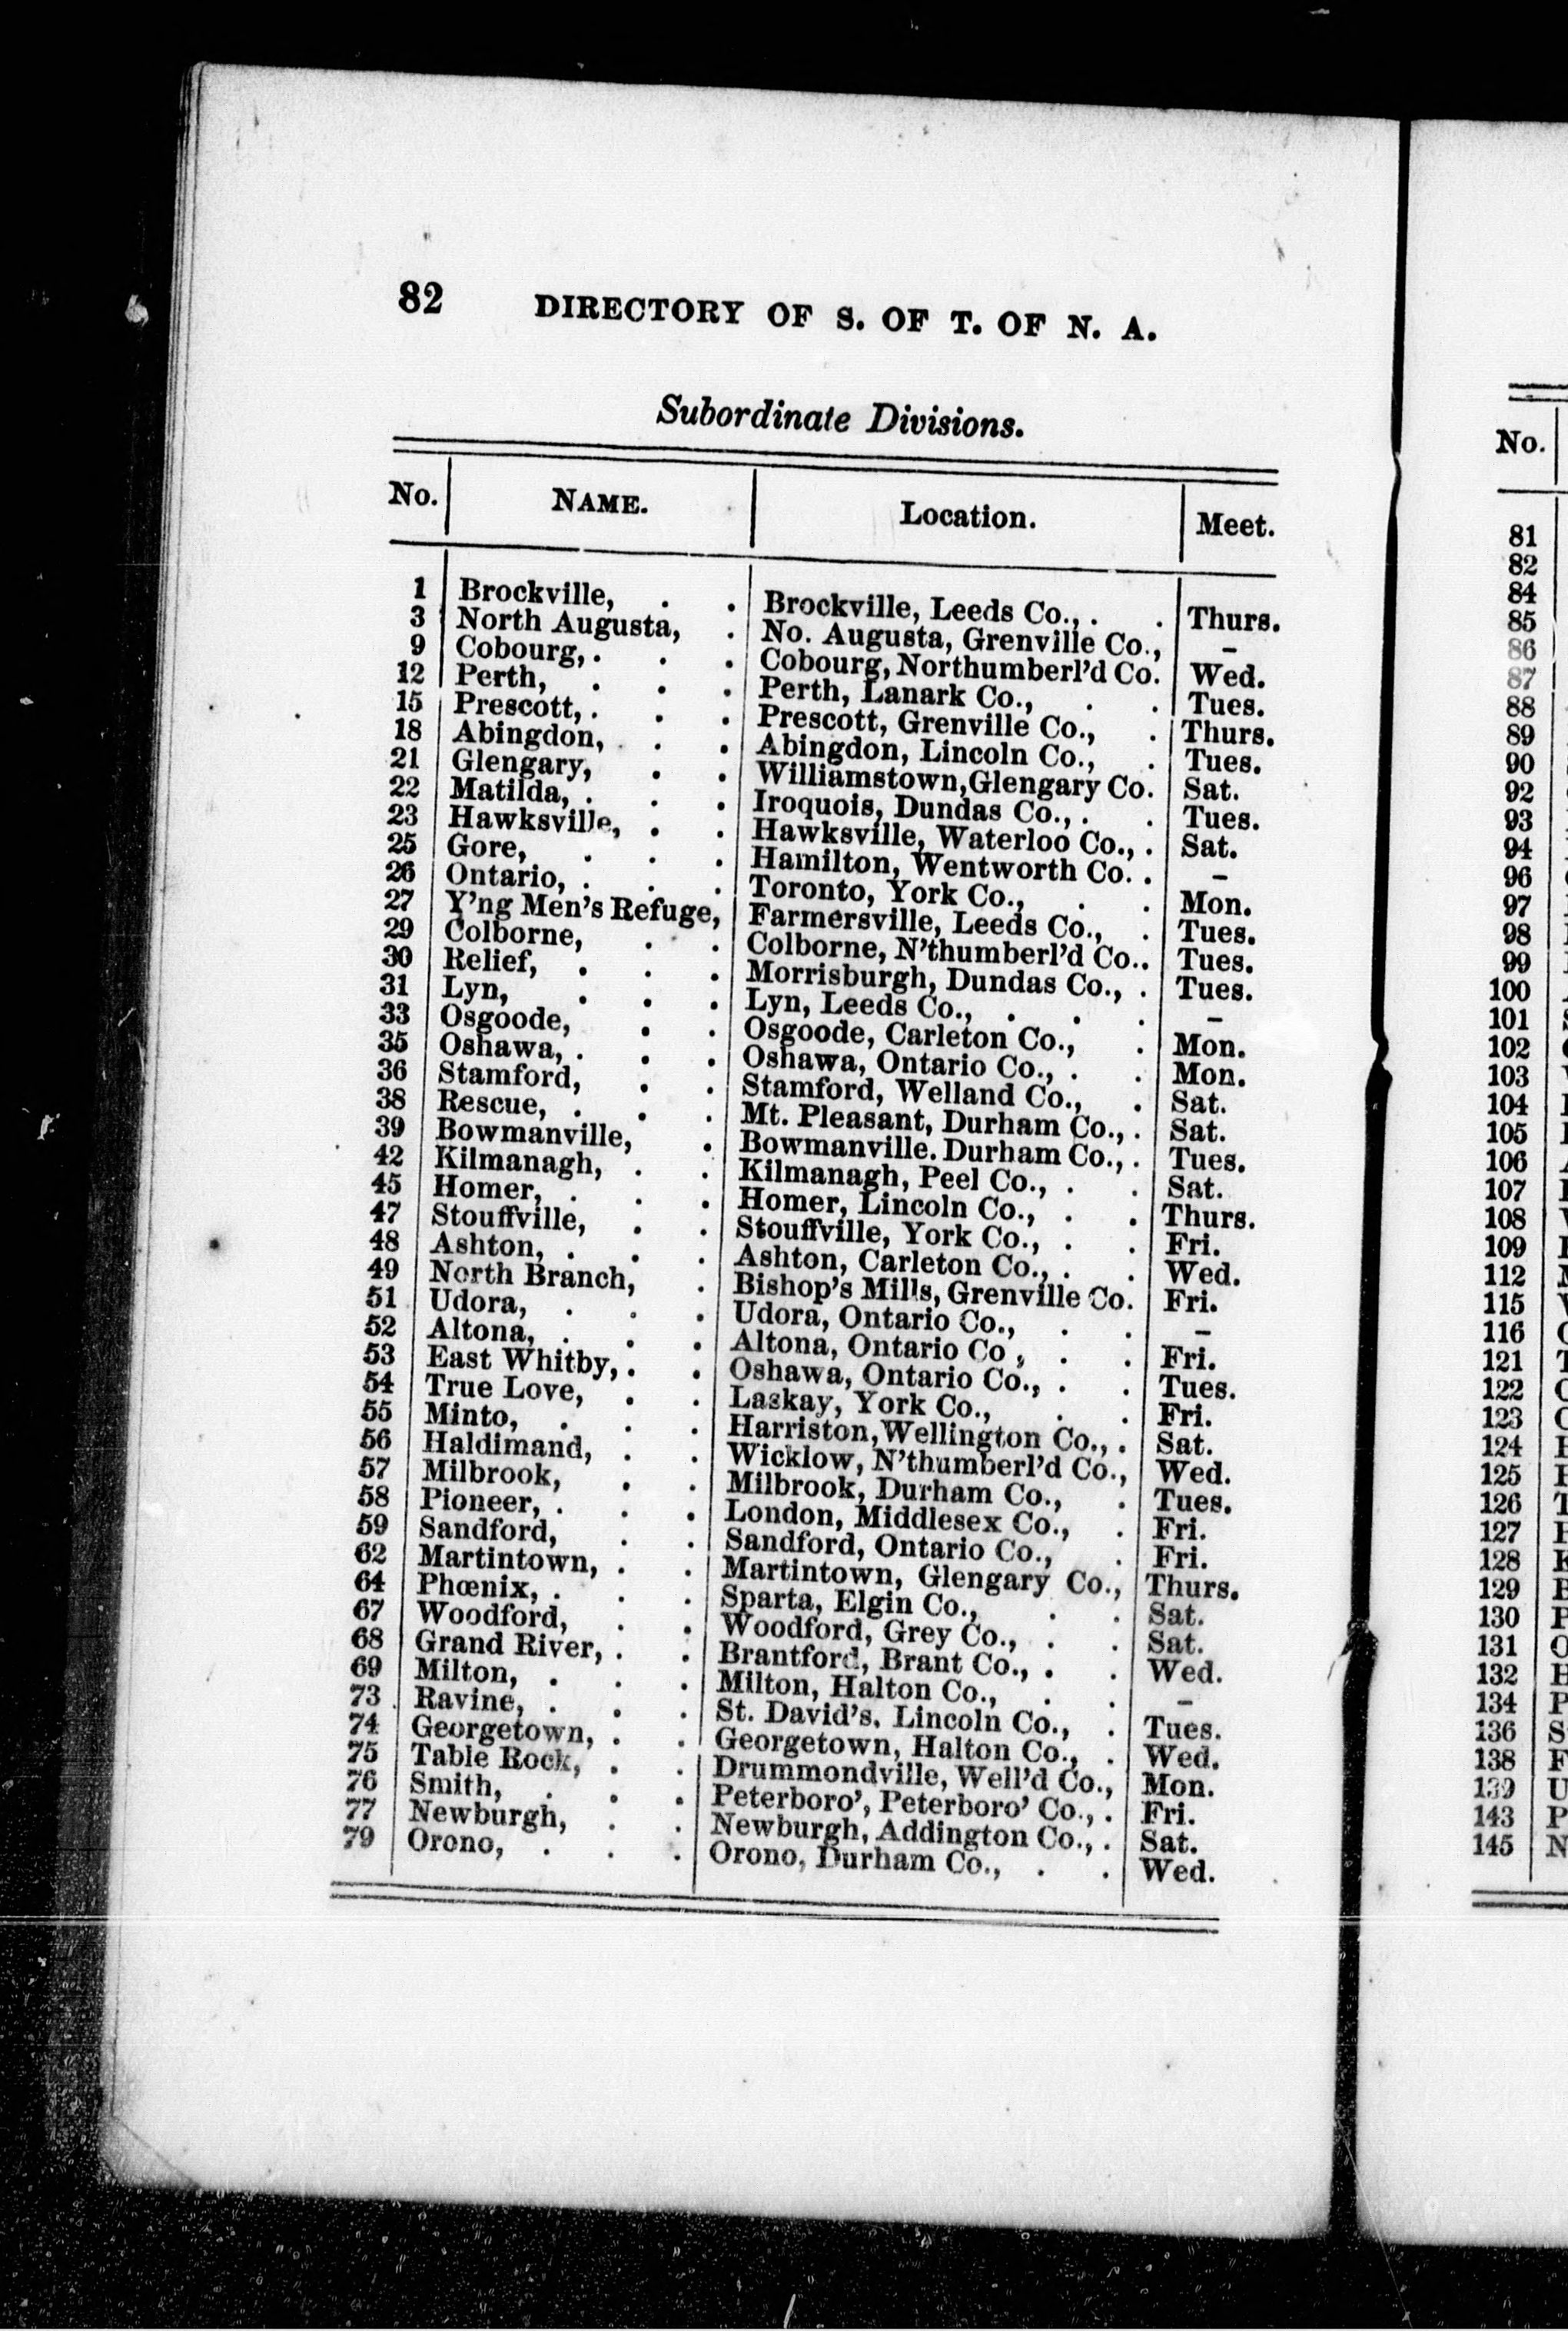 82 DIRECTORY OF S. OF T. OF N. A.
Subordinate Divisions.
No. NAME. Location. Meet.
1 Brockville, . . Brockville, Leeds Co., . . Thurs.
3 North Augusta, . No. Augusta, Grenville Co., –
9 Cobourg, . . . Cobourg, Northumberl'd Co. Wed.
12 Perth, . . . Perth, Lanark Co., . . Tues.
15 Prescott, . . . Prescott, Grenville Co., . Thurs.
18 Abingdon, . . . Abingdon, Lincoln Co., . Tues.
21 Glengary, . . Williamstown, Glengary Co. Sat.
22 Matilda, . . . Iroquois, Dundas Co., . . Tues.
23 Hawksville, . . Hawksville, Waterloo Co., . Sat.
25 Gore, . . . Hamilton, Wentworth Co. . –
26 Ontario, . . . Toronto, York Co., . . Mon.
27 Y'ng Men's Refuge, Farmersville, Leeds Co., . Tues.
29 Colborne, . . Colborne, N'thumberl'd Co.. Tues.
30 Relief, . . . Morrisburgh, Dundas Co., . Tues.
31 Lyn, . . . Lyn, Leeds Co., . . . –
33 Osgoode, . . Osgoode, Carleton Co., . Mon.
35 Oshawa, . . . Oshawa, Ontario Co., . . Mon.
36 Stamford, . . Stamford, Welland Co., . Sat.
38 Rescue, . . . Mt. Pleasant, Durham Co., . Sat.
39 Bowmanville, . Bowmanville. Durham Co., . Tues.
42 Kilmanagh, . . Kilmanagh, Peel Co., . . Sat.
45 Homer, . . . Homer, Lincoln Co., . . Thurs.
47 Stouffville, . . Stouffville, York Co., . . Fri.
48 Ashton, . . . Ashton, Carleton Co., . . Wed.
49 North Branch, . Bishop's Mills, Grenville Co. Fri.
51 Udora, . . . Udora, Ontario Co., . . –
52 Altona, . . . Altona, Ontario Co , . . Fri.
53 East Whitby, . . Oshawa, Ontario Co., . . Tues.
54 True Love, . . Laskay, York Co., . . Fri.
55 Minto, . . . Harriston, Wellington Co., . Sat.
56 Haldimand, . . Wicklow, N'thumberl'd Co., Wed.
57 Milbrook, . . Milbrook, Durham Co., . Tues.
58 Pioneer, . . . London, Middlesex Co., . Fri.
59 Sandford, . . Sandford, Ontario Co., . Fri.
62 Martintown, . . Martintown, Glengary Co., Thurs.
64 Phœnix, . . . Sparta, Elgin Co., . . Sat.
67 Woodford, . . Woodford, Grey Co., . . Sat.
68 Grand River, . . Brantford, Brant Co., . . Wed.
69 Milton, . . . Milton, Halton Co., . . –
73 Ravine, . . . St. David's, Lincoln Co., . Tues.
74 Georgetown, . . Georgetown, Halton Co., . Wed.
75 Table Rock, . . Drummondville, Well'd Co., Mon.
76 Smith, . . . Peterboro', Peterboro' Co., . Fri.
77 Newburgh, . . Newburgh, Addington Co., . Sat.
79 Orono, . . . Orono, Durham Co., . . Wed.
No.
81
82
84
85
86
87
88
89
90
92
93
94
96
97
98
99
100
101
102
103
104
105
106
107
108
109
112
115
116
121
122
123
124
125
126
127
128
129
130
131
132
134
136
138
139
143
145